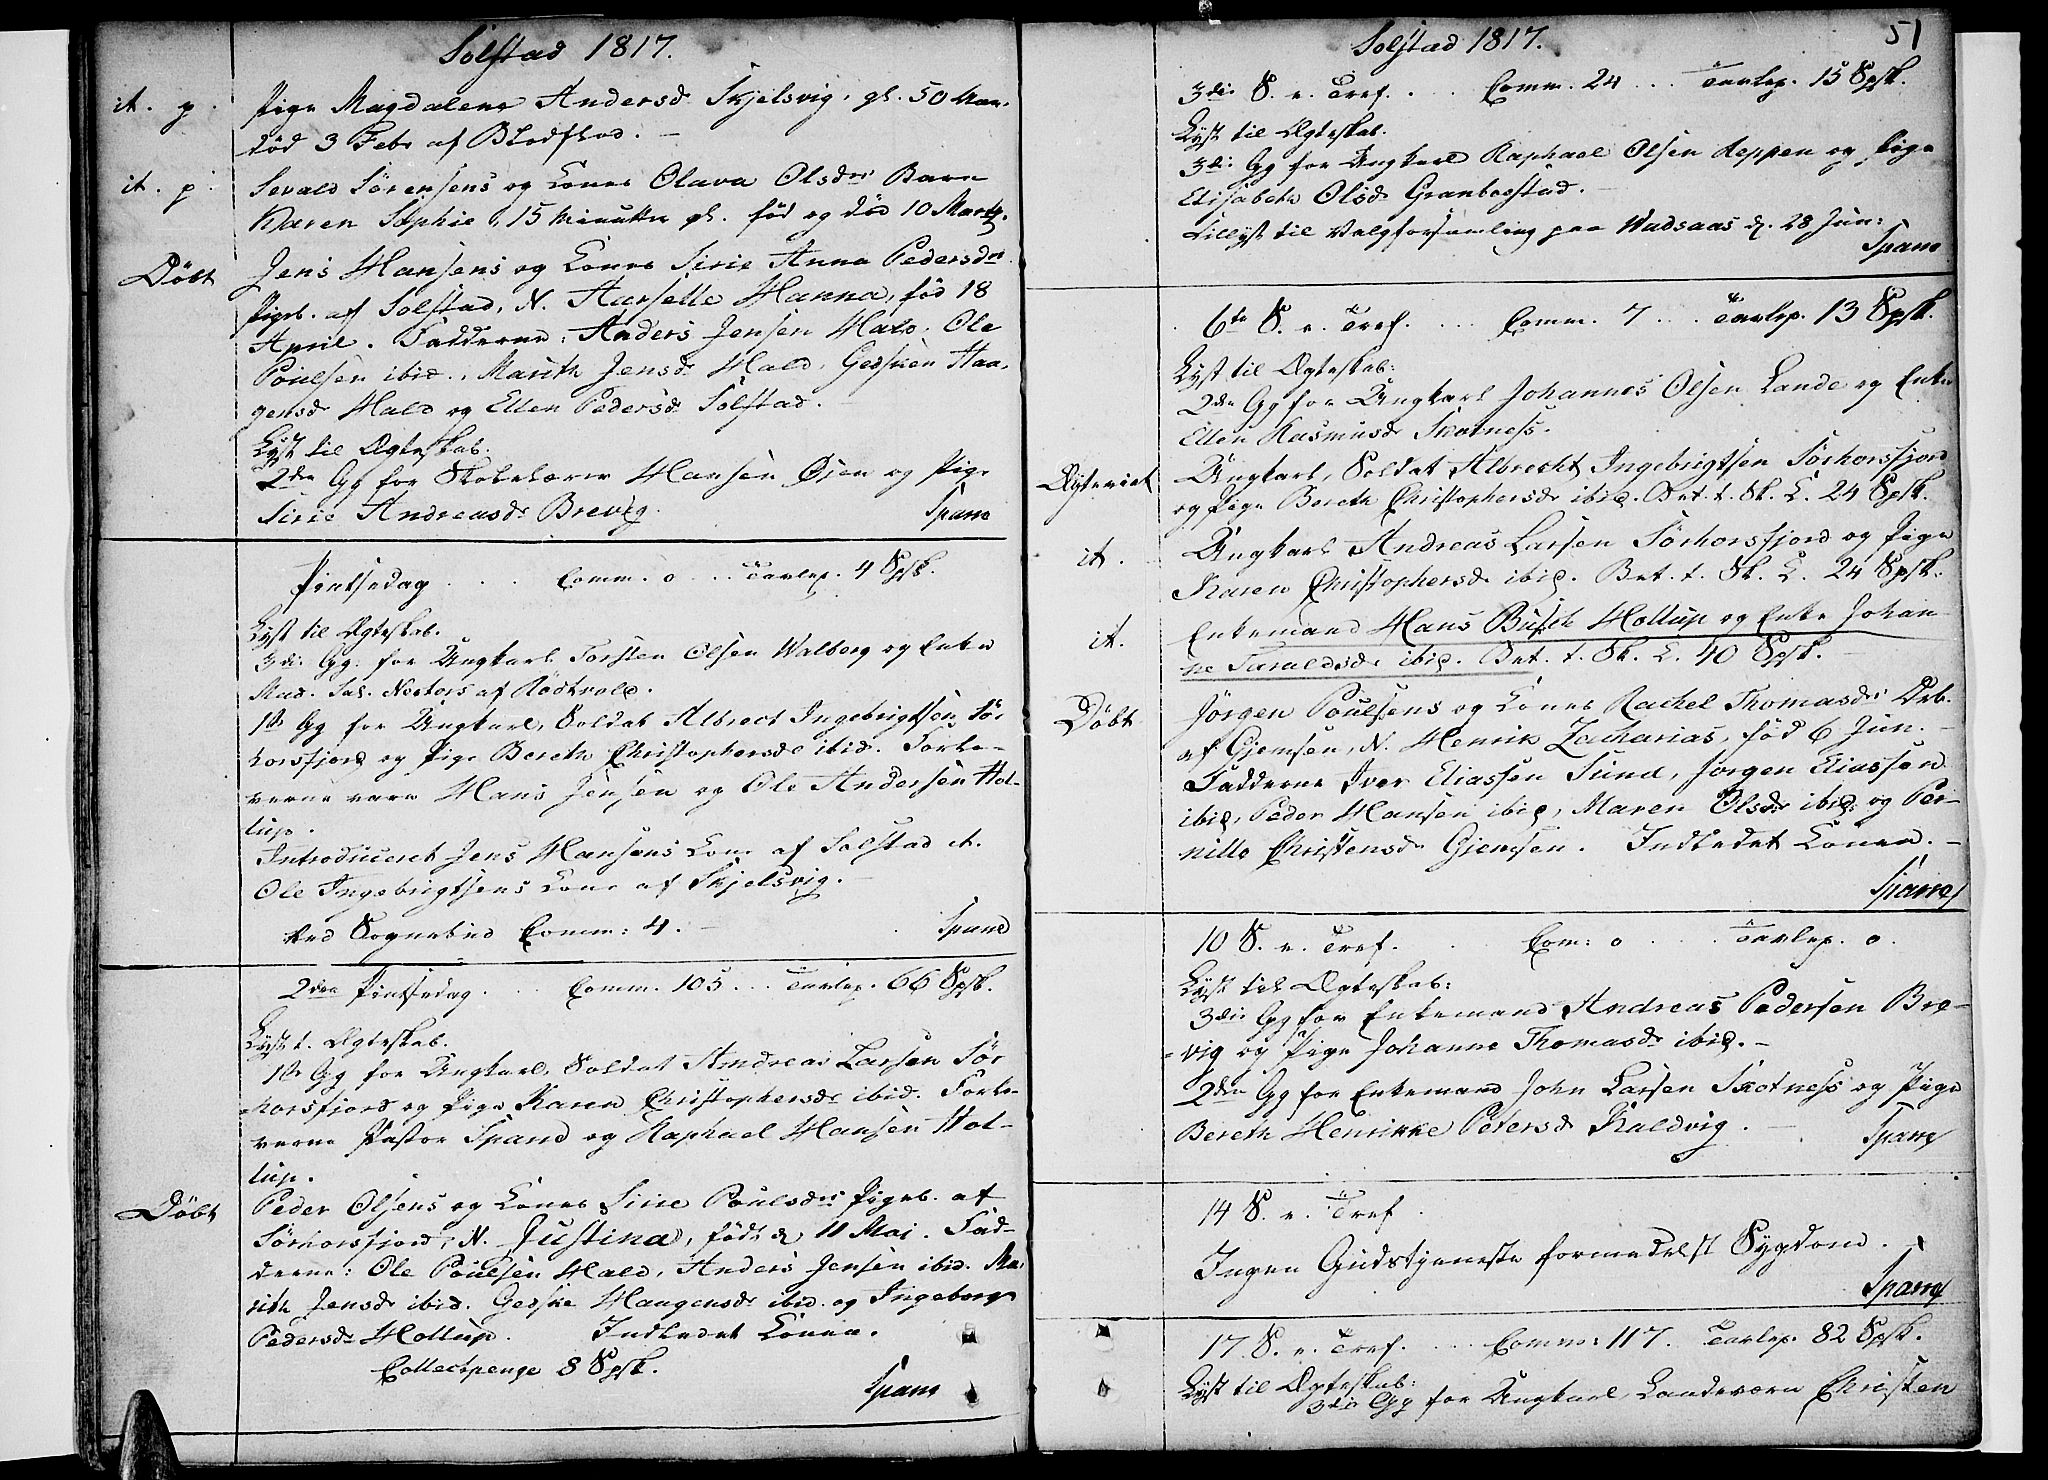 Solstad 1817.
it. p. Pige Magdalene Andersd. Skjelsvig, gl. 50 Aar.
död 3 Febr af Blodflod. –
it. p. Sevald Sörensens og Kones Olava Olsdrs Barn
Karen Sophie, 15 Minutter gl. föd og död 10 Martz.
Döbt Jens Hansens og Kones Sirie Anna Pedersdrs
Pigeb. af Solstad, N. Hanna, föd 18
April. Fadderne: Anders Jensen Hald, Ole
Poulsen ibid., Marith Jensdr Hald, Gesken Haa-
gensdr Hald og Ellen Pedersdr Solstad.
Lyst til Ægteskab.
2den Gg for Skolelærer Hansen Öien og Pige
Sirie Andreasdr Brevig. Spand
Pintsedag . . . Comm. 0 . . . Tavlep. 4 Spsk.
Lyst til Ægteskab.
3die Gg. for Ungkarl Torsten Olsen Walberg og Enke
Mad. Sal. af Rödtvold.
1ste Gg for Ungkarl, Soldat Albrect Ingebrigtsen Sör
horsfjord og Pige Bereth Christophersdr ibid. Forlo-
verne vare Hans Jensen og Ole Andersen Hol-
lup.
Introduceret Jens Hansens Kone af Solstad it.
Ole Ingebrigtsens Kone af Skjelsvig. –
Ved Sognebud Comm: 4. – Spand
2den Pintsedag . . . Comm. 105 . . . Tavlep. 66 Spsk.
Lyst t. Ægteskab.
1ste Gg for Ungkarl, Soldat Andreas Larsen Sör
horsfjord og Pige Karen Christophersdr ibid. Forlo-
verne Pastor Spand og Raphael Hansen Hol-
lup.
Döbt Peder Olsens og Kones Sirie Poulsdrs Pigeb. af
Sörhorsfjord, N. Justina, födt d. 11 Mai. Fad-
derne: Ole Poulsen Hald, Anders Jensen ibid. Ma-
rith Jensdr ibid. Geske Haagensdr ibid. og Ingeborg
Pedersdr Hollup. Indledet Konen.
Collectpenge 8 Spsk.
Spand
51
Solstad 1817.
3die S. e. Tref. . . . Comm. 24 . . . Tavlep. 15 Spsk.
Lyst til Ægteskab.
3die Gg for Ungkarl Raphael Olsen Reppen og Pige
Elisabeth Olsdr Granbostad. –
Tillyst til Valgforsamling paa Wadsaas d. 28 Jun:
Spand
6te S. e. Tref. . . . Comm. 7 . . . Tavlep. 13 Spsk.
Lyst til Ægteskab:
2den Gg for Ungkarl Johannes Olsen Lande og Enke
Ellen Rasmusdr Skotness.
Ægteviet Ungkarl, Soldat Albrecht Ingebrigtsen Sörhorsfjord
og Pige Bereth Christophersdr ibid. Bet. t. Sk. K. 24 Spsk.
it. Ungkarl Andreas Larsen Sörhorsfjord og Pige
Karen Christophersdr ibid. Bet. t. Sk. K. 24 Spsk.
it. Enkemand Hans Busch Hollup og Enke Johan-
ne Taraldsdr ibid. Bet. t. Sk. K. 40 Spsk. –
Döbt Jörgen Poulsens og Kones Rachel Thomasdrs Drb.
af Gjemsen, N. Henrik Zacharias, föd 6 Jun. –
Fadderne Iver Eliassen Sund, Jörgen Eliassen
ibid, Peder Hansen ibid, Maren Olsdr ibid. og Per-
nille Christensdr Gjemsen. Indledet Konen. –
Spand
10 S. e. Tref. . . Com: 0 . . . Tavlep. 0.
Lyst til Ægteskab:
3die Gg for Enkemand Andreas Pedersen Bre-
vig og Pige Johanna Thomasdr ibid. –
2den Gg for Enkemand John Larsen Skotness og Pige
Bereth Henrikke Petersdr Kaldvig. – Spand
14 S. e. Tref.
Ingen Gudstjeneste formedelst Sygdom. –
Spand
17 S. e. Tref. . . . Comm: 117. Tavlep. 82 Spsk.
Lyst til Ægteskab:
3die Gg for Ungkarl Landeværn Christen